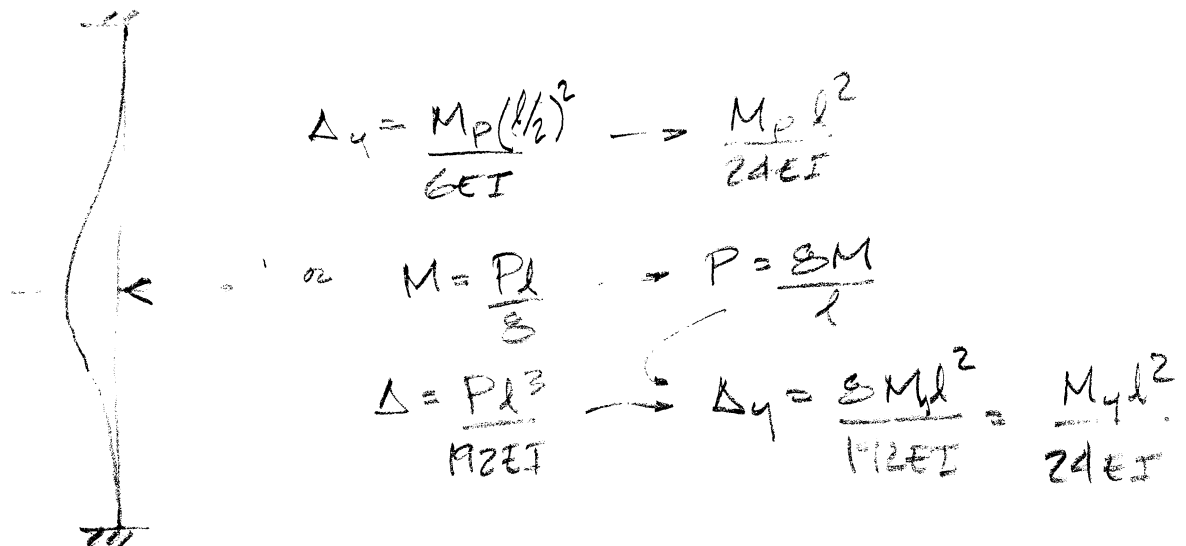 Δy = Mp(l/2)² / 6EI → Mp l² / 24EI
or M = Pl / 8 → P = 8M / l
Δ = Pl³ / 192EI → Δy = 8Myl² / 192EI = My l² / 24EI